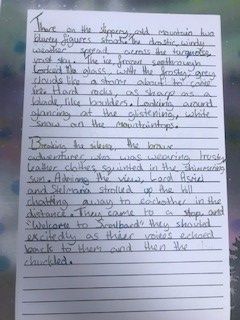 There on the slippery, old mountain two
blurry figures stood. The drastic, windy
weather spread across the turquoise,
vast sky. The ice frozen seethrough
looked like glass, with the frosty, grey
clouds like a storm about to come
in. Hard rocks, as sharp as a
blade, like boulders. Looking around
glancing at the glistening, white
snow on the mountaintops.
Breaking the silence, the brave
adventurer who was wearing trusty
leather clothes squinted in the shimmering
sun. Admiring the view, Lord Asriel
and Stelmaria strolled up the hill
chatting away to eachother in the
distance. They came to a stop and
"Welcome to Svalbard" they shouted
excitedly as their voices echoed
back to them and then the
chuckled.